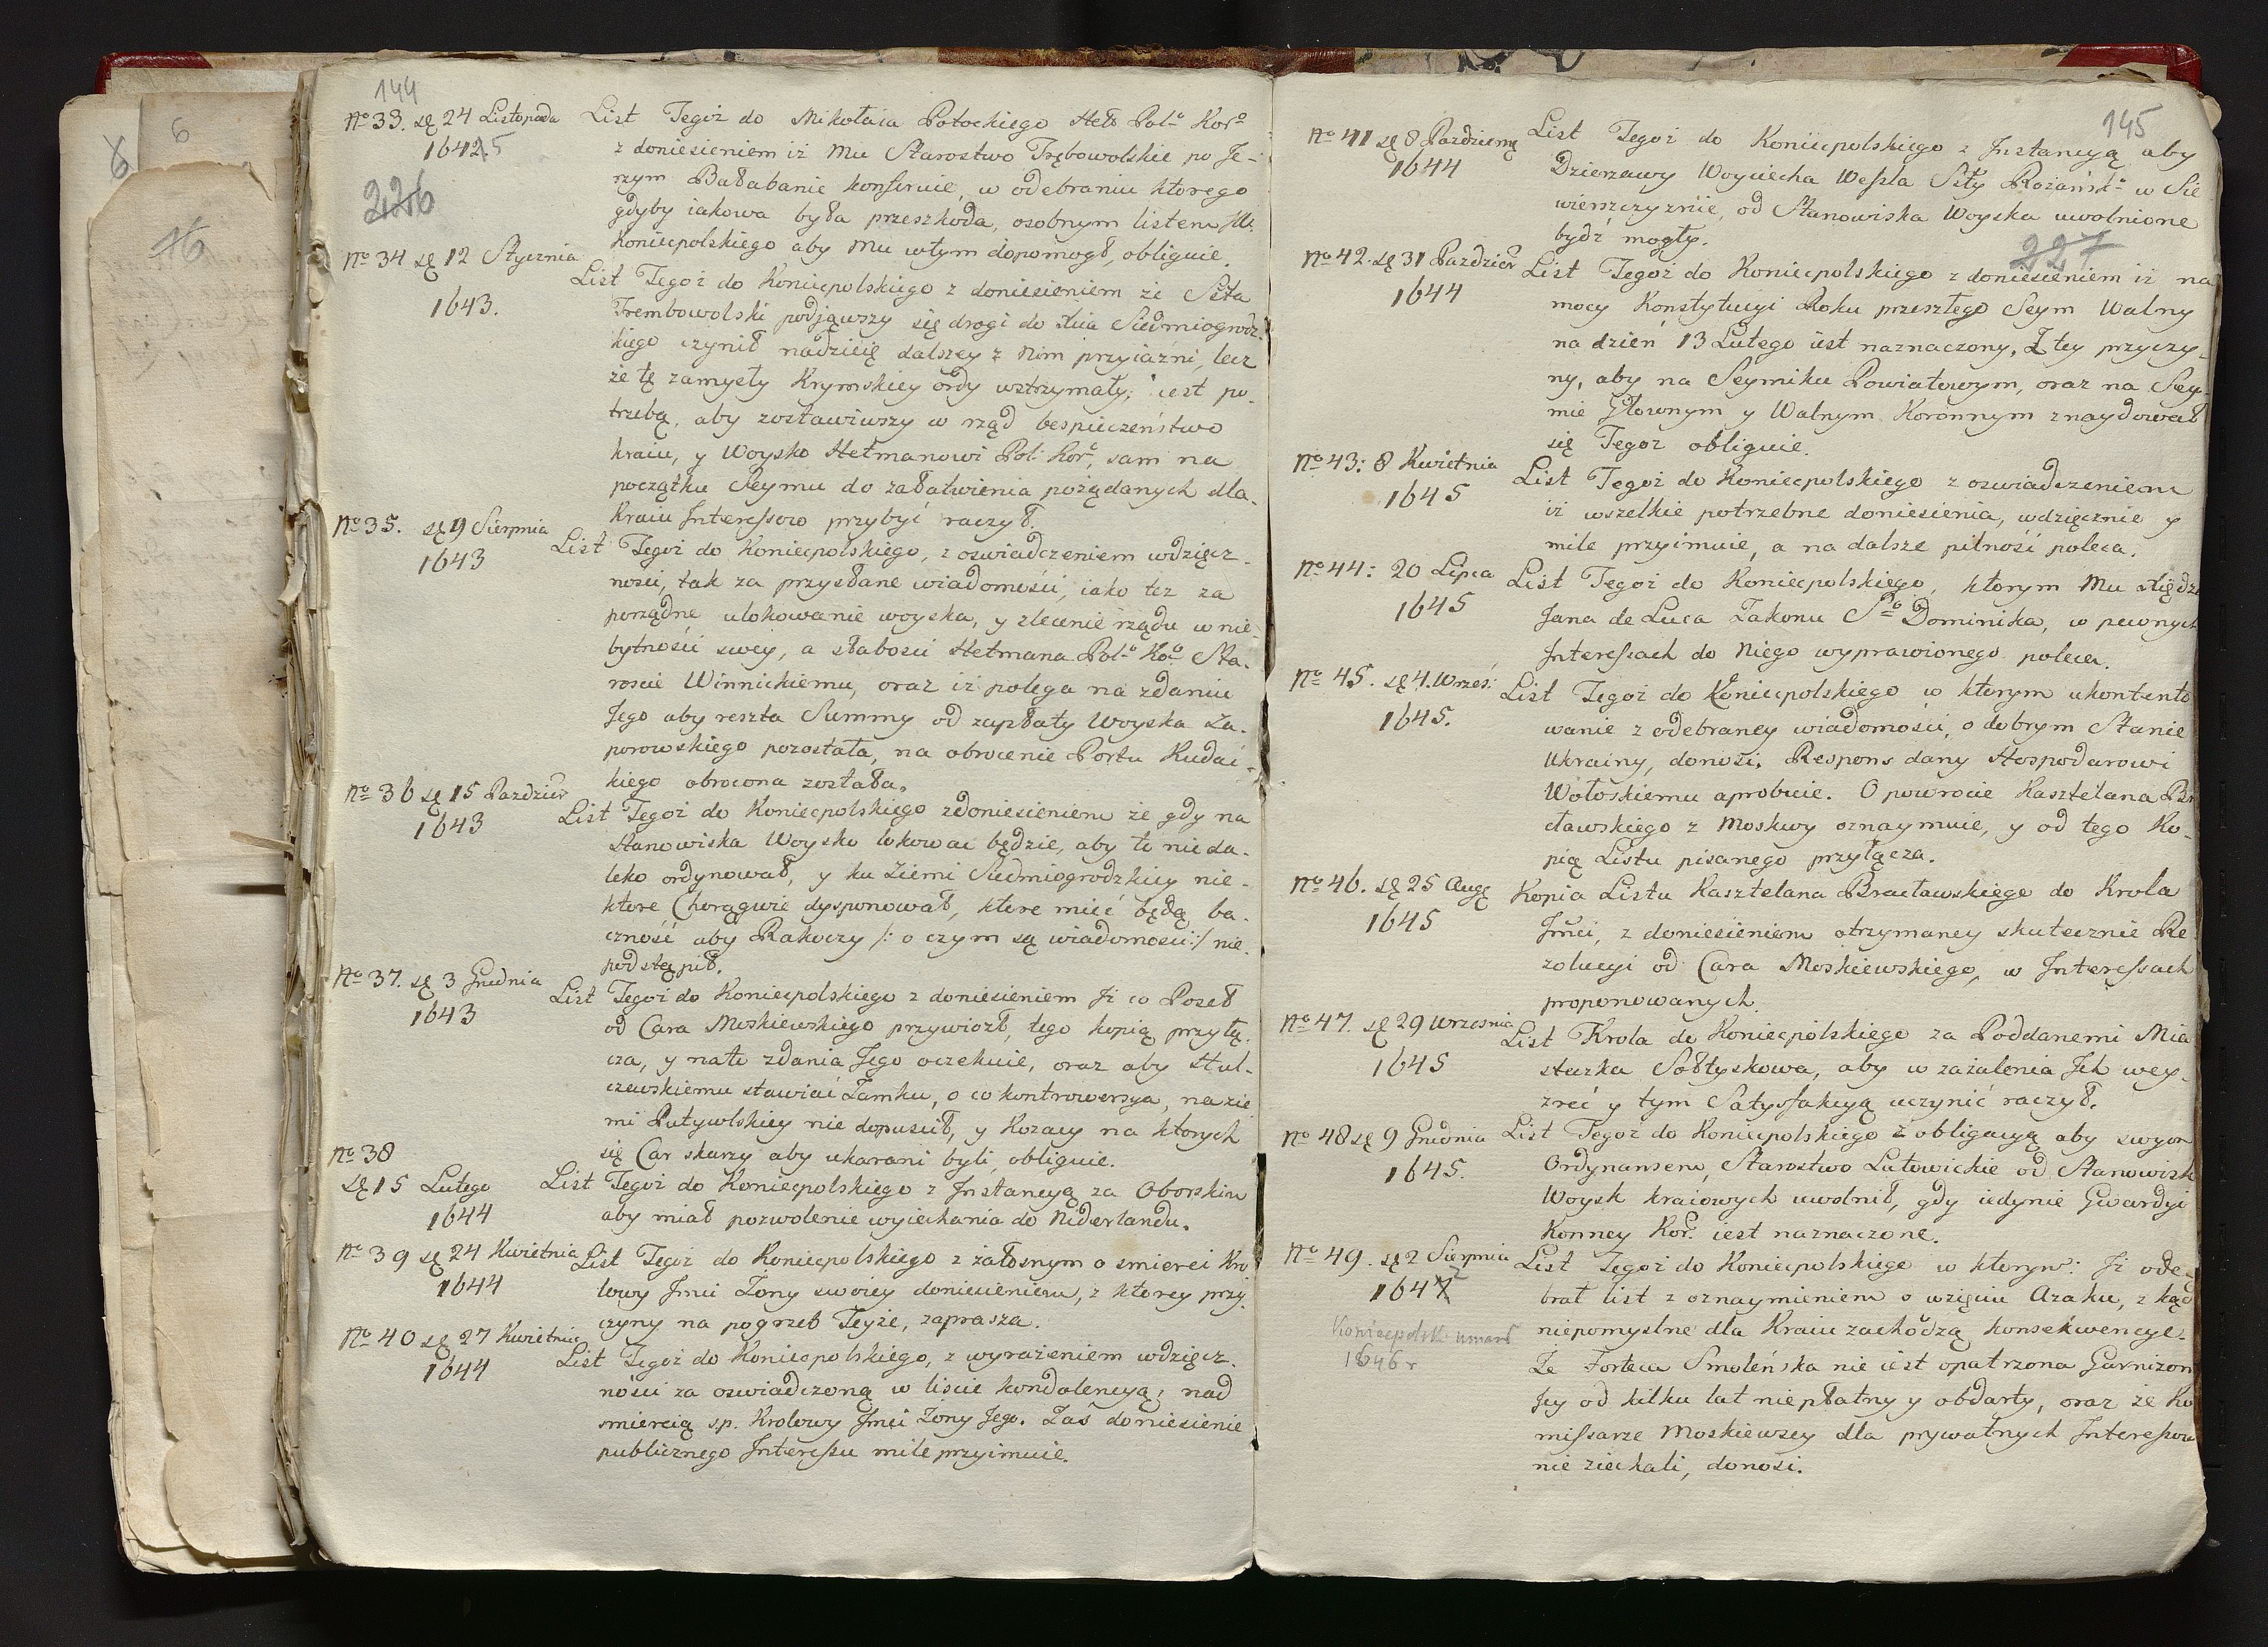 144
No 33. sę 24 Listopada
16425
226
List Tegoż do Mikołaia Potockiego Het Pol: Kor:
z doniesieniem iż Mu Starostwo Trębowolskie po Je-
rzym Bałabanie konferuie, w odebraniu ktorego
gdyby iakowa była przeszkoda, osobnym listem
Koniecpolskiego aby Mu wtym dopomogł, obliguie.
No 34 sę 12 Stycznia
1643.
List Tegoż do Koniecpolskiego z doniesieniem że Stta
Trembowolski podjąwszy się drogi do Xcia Siedmiogrodz-
kiego czynił nadzieię dalszey z Nim przyiaźni, lecz
że tę zamysły Krymskiey ordy wstrzymały; iest po-
trzebą, aby zostawiwszy w rząd bespieczeństwo
kraiu, y Woysko Hetmanowi Pol: Kor:, sam na
początku Seymu do załatwienia pożądanych dla
Kraiu Interessow przybyć raczył.
No 35. sę 9 Sierpnia
1643
List Tegoż do Koniecpolskiego, z oswiadczeniem wdzięcz-
nosci, tak za przysłane wiadomości, iako tez za
porządne ulokowanie woyska, y zlecenie rządu w nie-
bytności swey, a słabosci Hetmana Pol: Ko: Sta-
roscie Winnickiemu, oraz iż polega na zdaniu
Jego aby reszta Summy od zapłaty Woyska Za-
porowskiego pozostała, na obrocenie Portu Kudac-
kiego obrocona została.
No 36 sę 15 Pazdzier
1643
List Tegoż do Koniecpolskiego zdoniesieniem że gdy na
Stanowiska Woysko lokować będzie, aby te nieda-
leko ordynował, y ku Ziemi Siedmiogrodzkiey nie-
ktore Chorągwie dysponował, ktore mieć będą ba-
czność aby Rakoczy /: o czym są wiadomosci:/ nie
podstąpił.
No 37. sę 3 Grudnia
1643
List Tegoż do Koniecpolskiego z doniesieniem Jż co Poseł
od Cara Moskiewskiego przywiozł, tego kopią przyłą-
cza, y nato zdania Jego oczekuie, oraz aby Hul-
czewskiemu stawiać Zamku, o co kontrowersya, na zie
mi Putywlskiey nie dopuscił, y Kozacy na ktorych
się Car skarzy aby ukarani byli, obliguie.
No 38
sę 15 Lutego
1644
List Tegoż do Koniecpolskiego z Jnstancyą za Oborskim
aby miał pozwolenie wyiechania do Niderlandu.
No 39 sę 24 Kwietnia
1644
List Tegoż do Koniecpolskiego z żałosnym o smierci Kro
lowy Jmci Żony swoiey doniesieniem, z ktorey przy
czyny na pogrzeb Teyże, zaprasza.
No 40 sę 27 Kwietnia
1644
List Tegoż do Koniecpolskiego, z wyrażeniem wdzięcz-
ności za oswiadczoną w liscie kondolencyą, nad
smiercią s.p. Krolowy Jmci Żony Jego. Zaś doniesienie
publicznego Interessu mile przyimuie.
145
No 41 sę 8 Pazdziernę
1644
List Tegoż do Koniecpolskiego z Jnstancyą aby
Dzierzawy Woyciecha Wessla Stty Rożańsk: w Sie
wierszczyznie, od Stanowiska Woyska uwolnione
bydź mogły.
227
No 42. sę 31 Pazdzier
1644
List Tegoż do Koniecpolskiego z doniesieniem iż na
mocy Konstytucyi Roku przeszłego Seym Walny
na dzień 13 Lutego iest naznaczony, Z tey przyczy-
ny, aby na Seymiku Powiatowym, oraz na Sey-
mie Głownym y Walnym Koronnym znaydował
się Tegoz obliguie.
No 43: 8 Kwietnia
1645
List Tegoż do Koniecpolskiego z oswiadczeniem
iż wszelkie potrzebne doniesienia, wdzięcznie y
mile przyimuie, a na dalsze pilność poleca.
No 44: 20 Lipca
1645
List Tegoż do Koniecpolskiego, ktorym Mu Xiędza
Jana de Luca Zakonu Sgo Dominika, w pewnych
Interessach do Niego wyprawionego poleca.
No 45. sę 4. Wrześ:
1645.
List Tegoż do Koniecpolskiego w ktorym ukontento
wanie z odebraney wiadomości, o dobrym Stanie
Ukrainy, donosi. Respons dany Hospodarowi
Wołoskiemu aprobuie. O powrocie Kasztelana Br
cławskiego z Moskwy oznaymuie, y od tego Ko-
pią Listu pisanego przyłącza.
No 46. sę 25 Augę
1645
Kopia Listu Kasztelana Bracławskiego do Krola
Jmci, z doniesieniem otrzymaney skutecznie Re
zolucyi od Cara Moskiewskiego, w Interessach
proponowanych.
No 47. sę 29 Wrzesnia
1645
List Krola do Koniecpolskiego za Poddanemi Mia
steczka Sołtyskowa, aby w zażalenia Jch wey-
zreć y tym Satysfakcyą uczynić raczył.
No 48 sę 9 Grudnia
1645.
List Tegoż do Koniecpolskiego z obligacyą aby swym
Ordynansem, Starostwo Latowickie od Stanowisk
Woysk kraiowych uwolnił, gdy iedynie Gwardyi
Konney Kor: iest naznaczone.
No 49. sę 2 Sierpnia
1647 2
Koniecpolski umarł
1646 r
List Tegoż do Koniecpolskiego w ktorym: Jż ode-
brał list z oznaymieniem o wzięciu Azaku, z kąd
niepomyslne dla Kraiu zachodzą konsekwencye.
Że Forteca Smoleńska nie iest opatrzona Garnizon
Jey od kilku lat niepłatny y obdarty, oraz że Ko
missarze Moskiewscy dla prywatnych Interessow
nie ziechali, donosi.
6
6
16